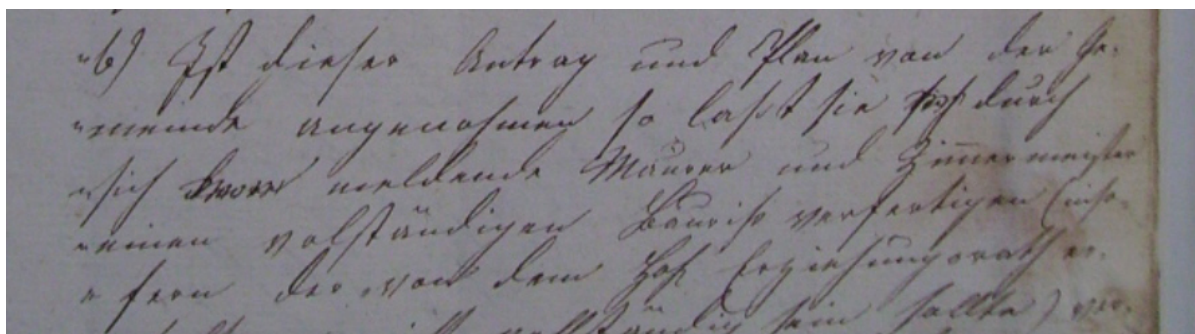 "b) Ist dieser Antrag und Plan von der Ge-
"meinde angenohmen so laßt sie durch
"sich meldende Maurer und Zimmermeister
"einen volständigen Bauriß verfertigen (inso-
"fern der von dem Erziehungsrath er-
vollständig sein sollte) ver-